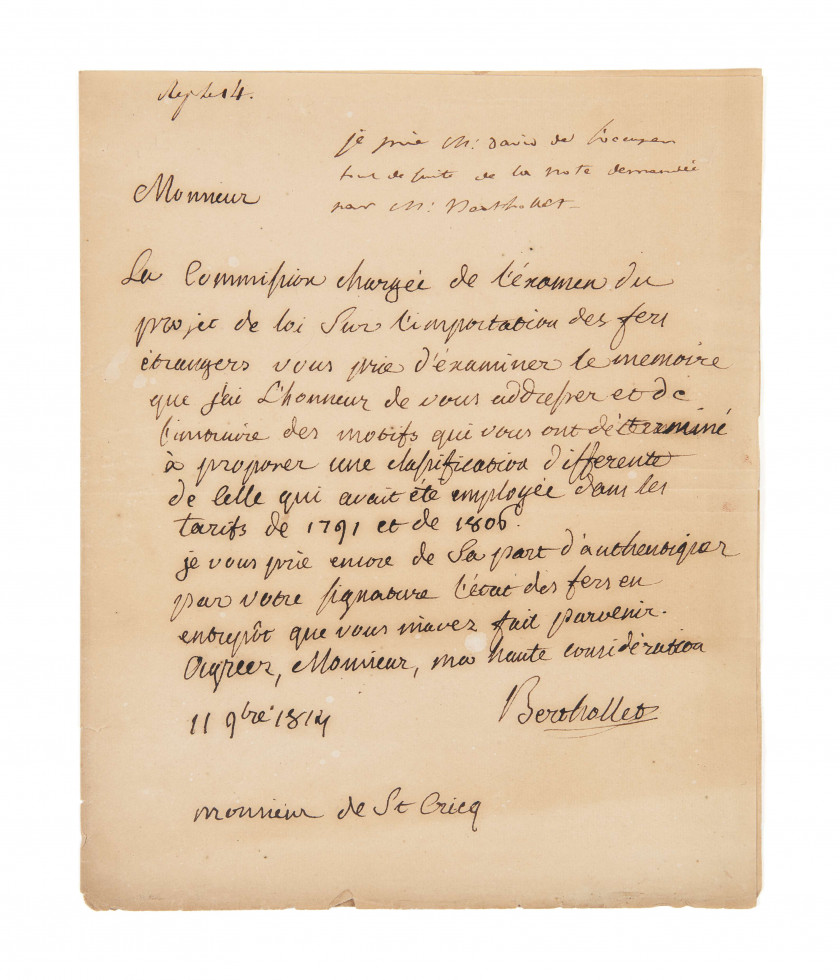 Rep. le 14.
je prie M. David de s'occuper
tout de suite de la note demandée
par M. Berthollet
Monsieur
La Commission chargée de l'éxamen du
projet de loi sur l'importation des fers
étrangers vous prie d'éxaminer le memoire
que j'ai L'honneur de vous addresser et de
l'instruire des motifs qui vous ont déterminé
à proposer une classification differente
de celle qui avait été employée dans les
tarifs de 1791 et de 1806.
je vous prie encore de sa part d'authentiquer
par votre signature l'état des fers en
entrepôt que vous m'avez fait parvenir.
Agréez, Monsieur, ma haute considération
11 9bre 1814
Berthollet
monsieur de St Cricq